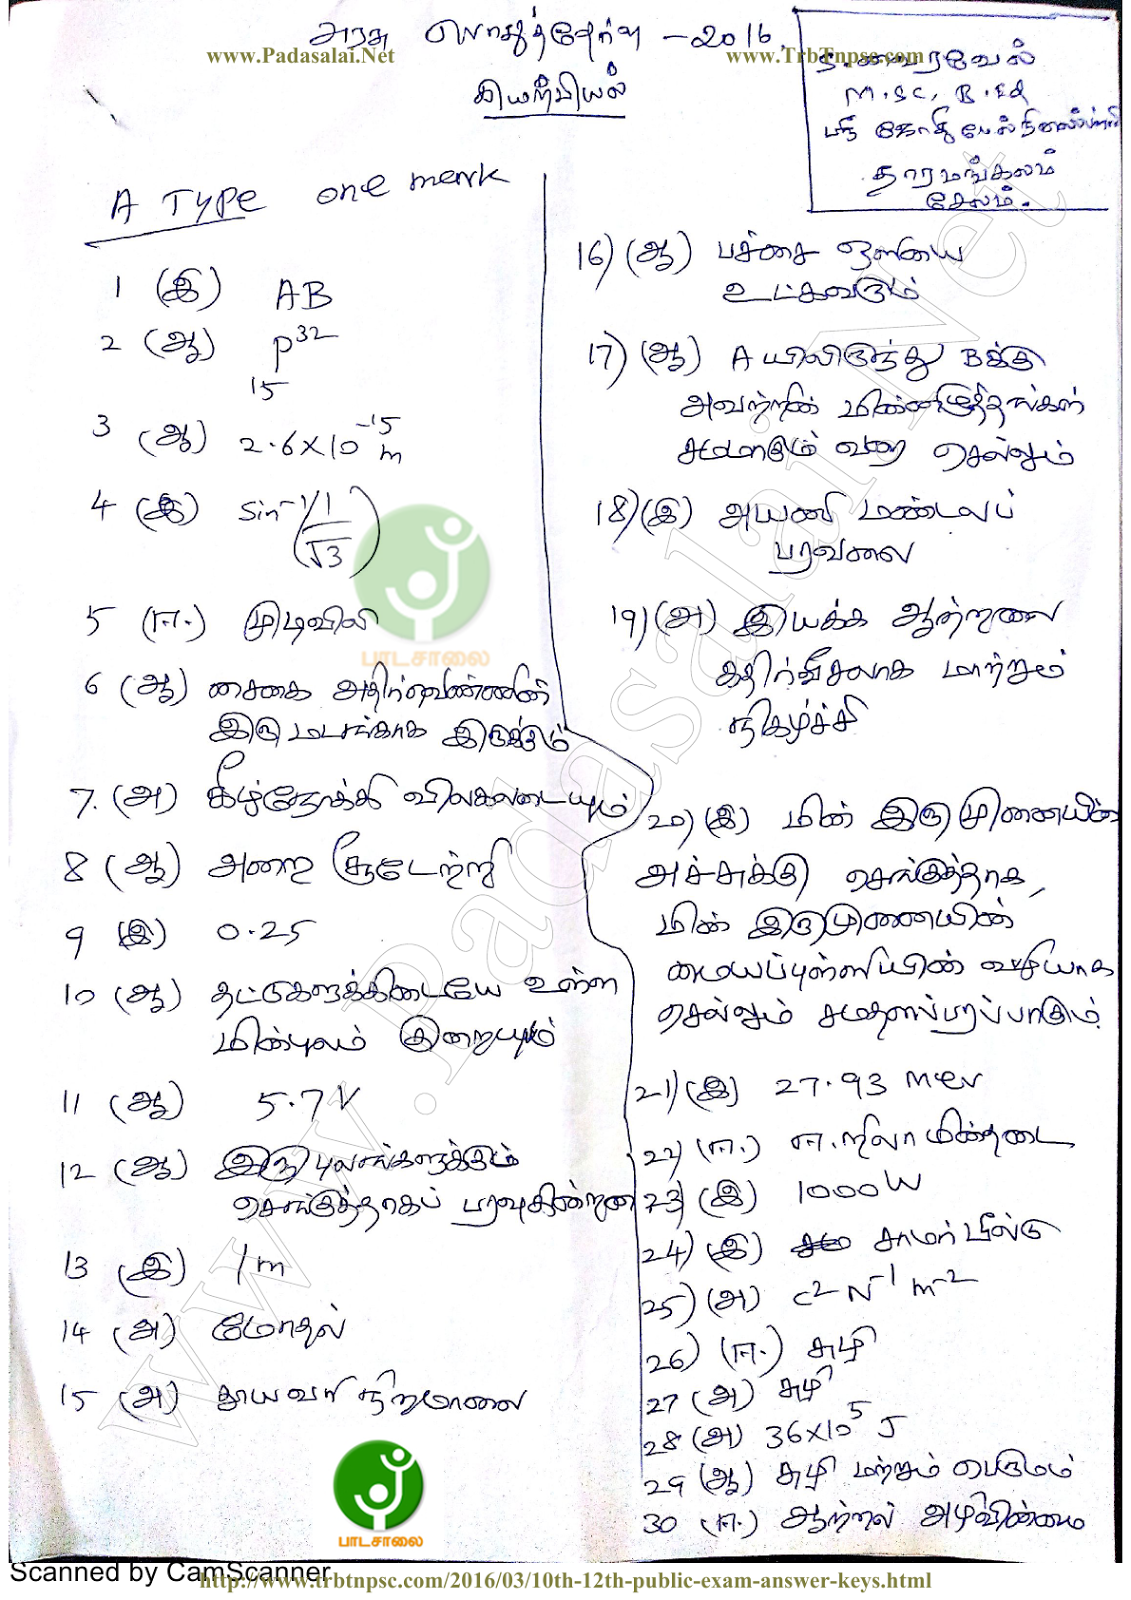 அரசு பொதுத்தேர்வு - 2016
www.Padasalai.Net
www.TrbTnpsc.com
இயற்பியல்
ந.கலைரவேல்
M.Sc, B.Ed
ஸ்ரீ ஜோதி மேல்நிலைப்பள்ளி
தாரமங்கலம்
சேலம்.
A TYPE one mark
1 (இ) AB
2 (ஆ) p32
15
3 (ஆ) 2.6x10-15 m
4 (இ) sin-1(1/√3)
5 (ஈ.) முடிவிலி
பாடசாலை
6 (ஆ) சைகை அதிர்வெண்ணின்
இரு மடங்காக இருக்கும்
7. (அ) கீழ்நோக்கி விலகலடையும்
8 (ஆ) அறை சூடேற்றி
9 (இ) 0.25
10 (ஆ) தட்டுகளுக்கிடையே உள்ள
மின்புலம் குறையும்
11 (ஆ) 5.7 V
12 (ஆ) இரு புலங்களுக்கும்
செங்குத்தாகப் பரவுகின்றன
13 (இ) 1m
14 (அ) மோதல்
15 (அ) தூய வரி நிறமாலை
16) (ஆ) பச்சை ஒளியை
உட்கவரும்
17) (ஆ) A யிலிருந்து Bக்கு
அவற்றின் மின்னழுத்தங்கள்
சமமாகும் வரை செல்லும்
18) (இ) அயனி மண்டலப்
பரவலை
19) (அ) இயக்க ஆற்றலை
கதிர்வீசலாக மாற்றும்
நிகழ்ச்சி
20) (இ) மின் இருமுனையின்
அச்சுக்கு செங்குத்தாக,
மின் இருமுனையின்
மையப்புள்ளியின் வழியாக
செல்லும் சமதளப்பரப்பாகும்.
21) (இ) 27.93 mev
22) (ஈ.) ஈ.றிலா மின்தடை
23) (இ) 1000W
24) (இ) சாமர்பீல்டு
25) (அ) c2 N-1 m-2
26) (ஈ.) சுழி
27 (அ) சுழி
28 (அ) 36x10 5 J
29 (ஆ) சுழி மற்றும் பெருமம்
30 (ஈ.) ஆற்றல் அழிவின்மை
பாடசாலை
Scanned by CamScanner
http://www.trbtnpsc.com/2016/03/10th-12th-public-exam-answer-keys.html
www.Padasalai.Net